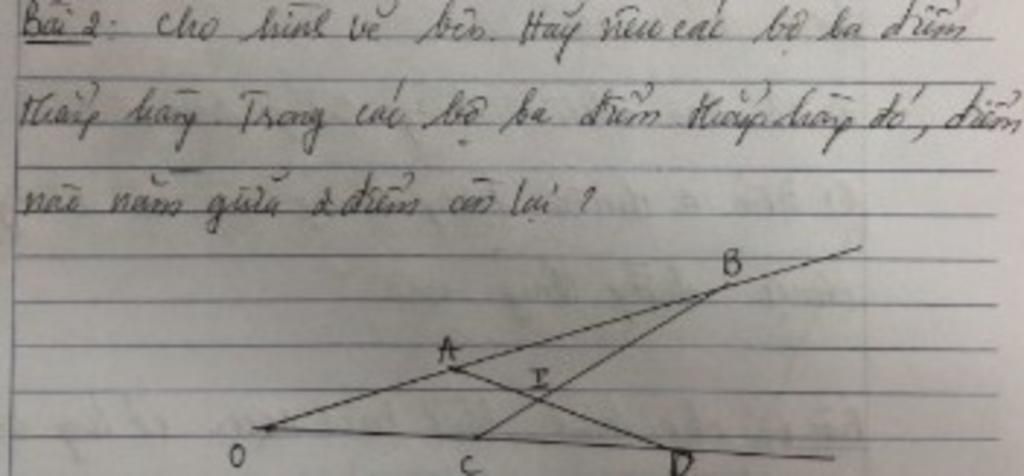 Bài 2: Cho hình vẽ bên. Hãy nêu các bộ ba điểm
thẳng hàng. Trong các bộ ba điểm thẳng hàng đó, điểm
nào nằm giữa 2 điểm còn lại?
B
A
I
O
C
D